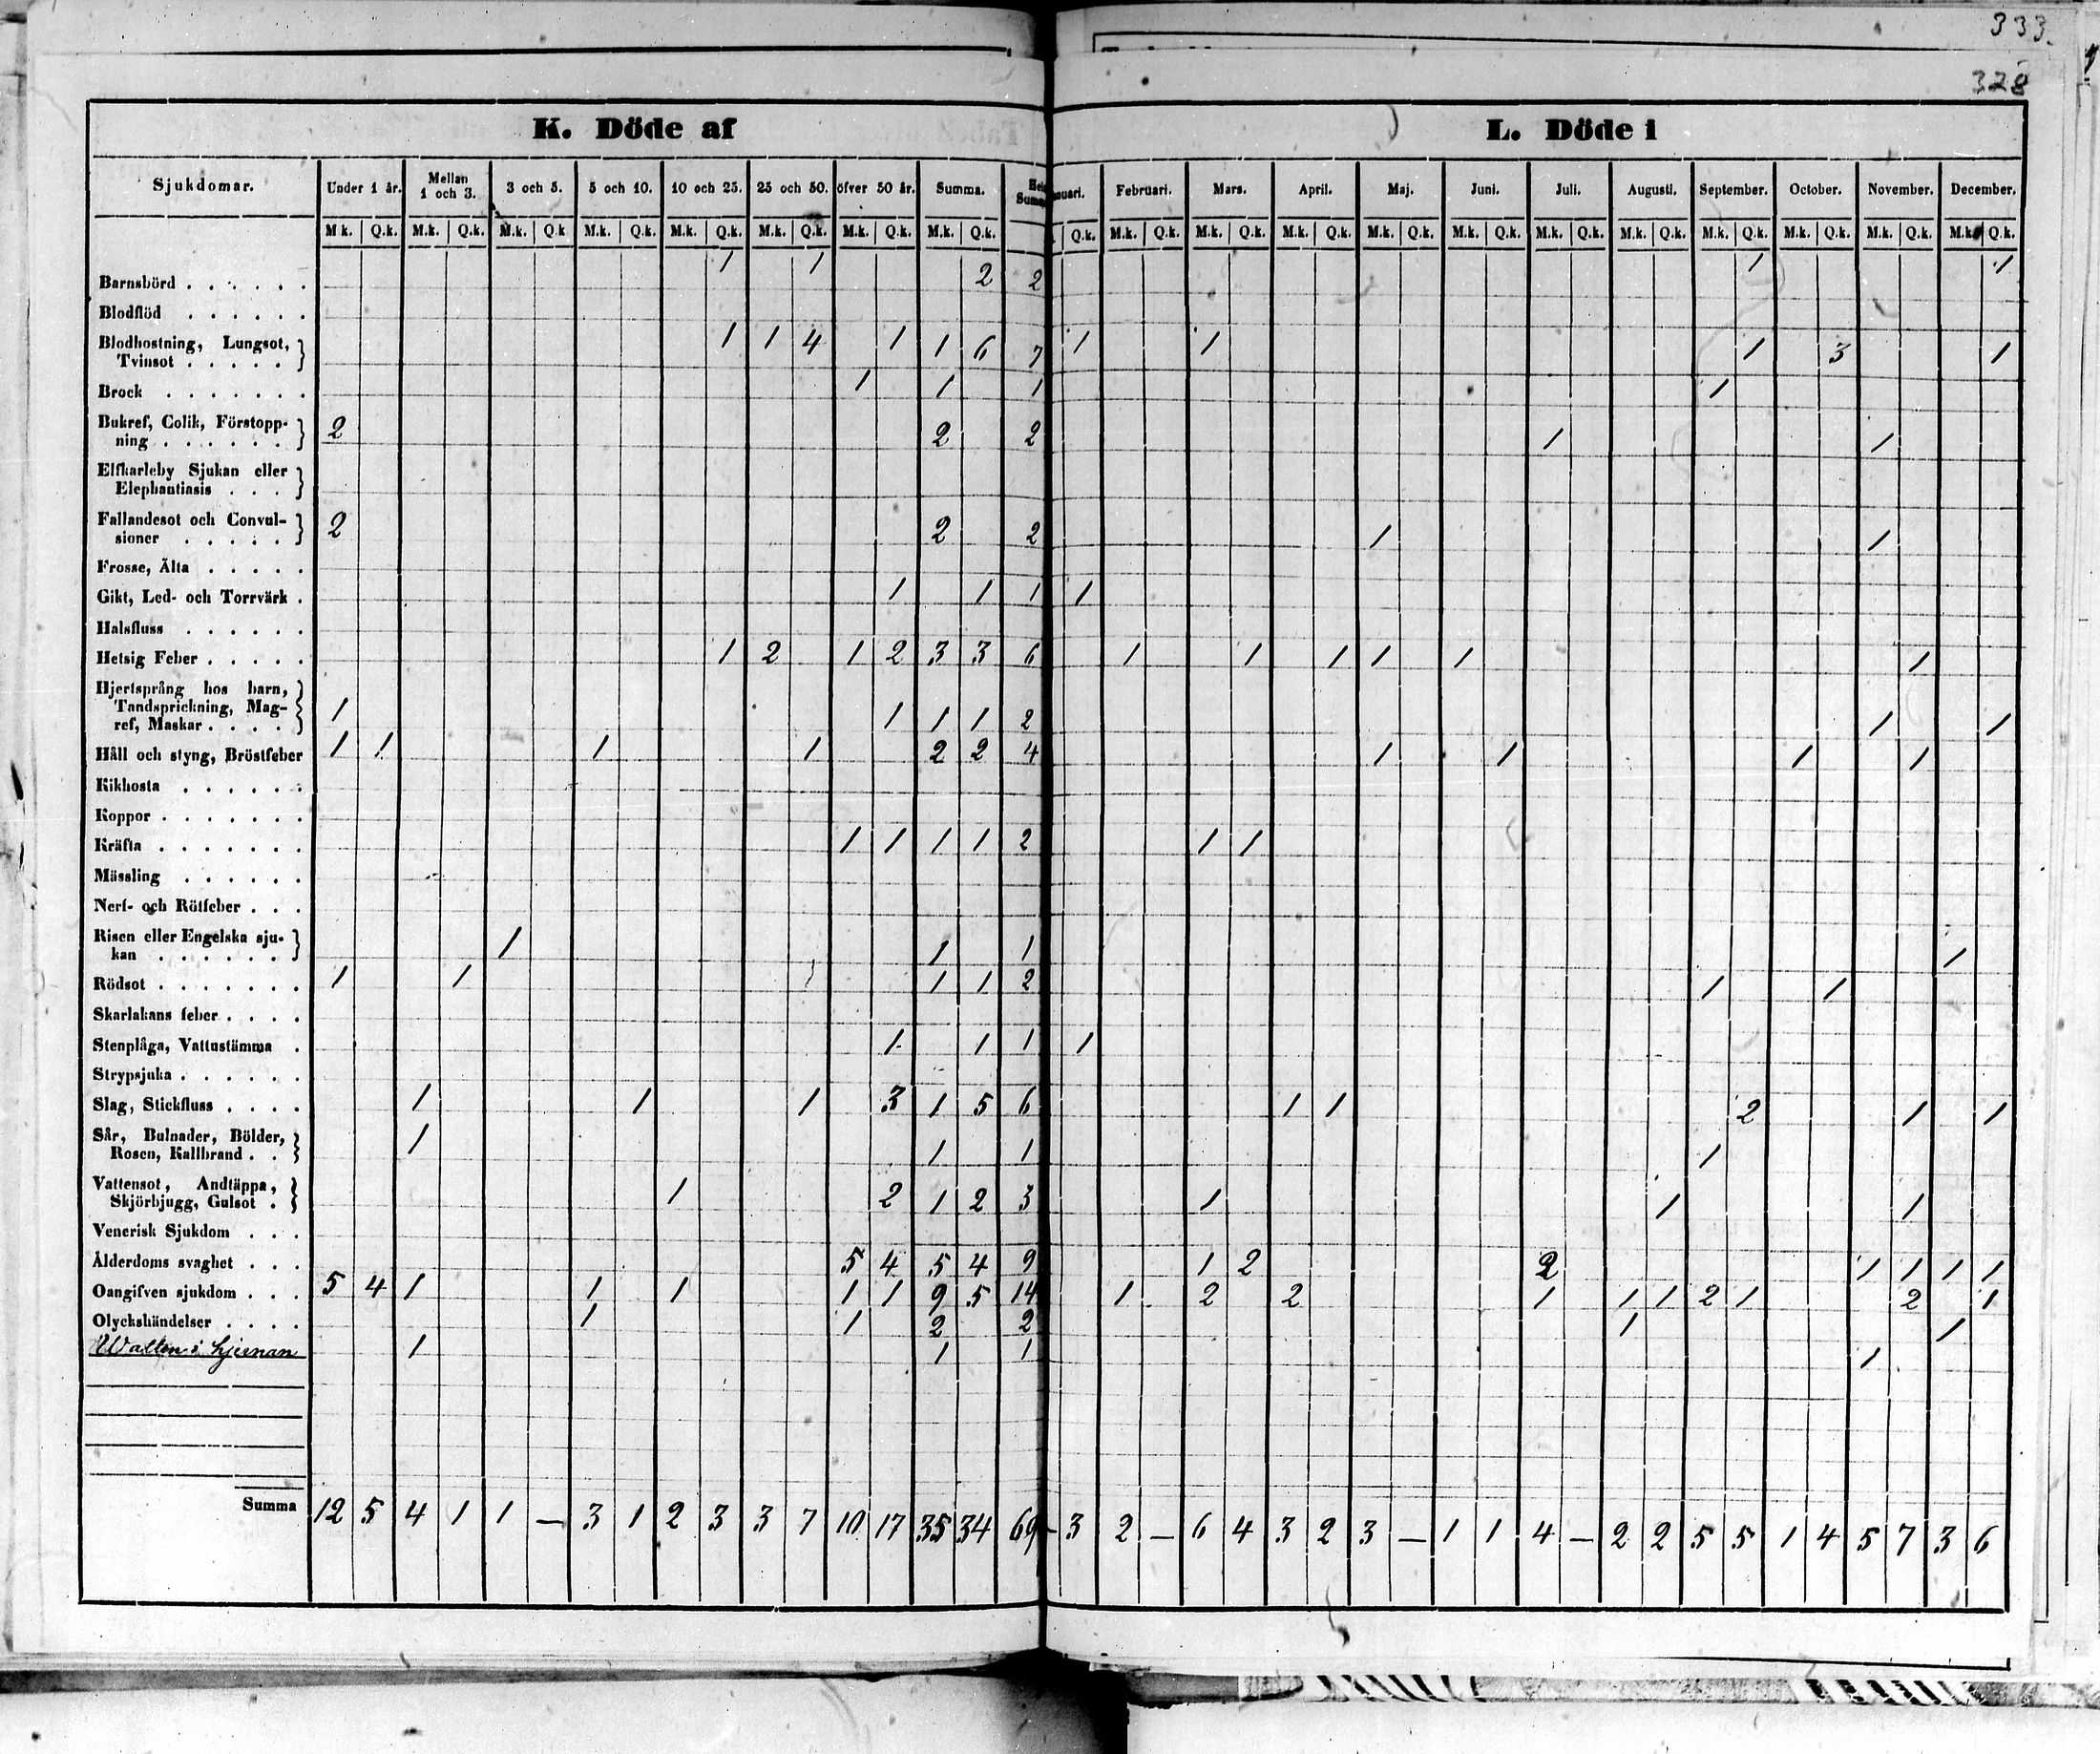 333.
328
K. Döde af
L. Döde i
Sjukdomar. Under 1 år. Mellan 1 och 3. 3 och 5. 5 och 10. 10 och 25. 25 och 50. öfver 50 år. Summa. Februari. Mars. April. Maj. Juni. Juli. Augusti. September. October. November. December.
M.k. Q.k. M.k. Q.k. M.k. Q.k. M.k. Q.k. M.k. Q.k. M.k. Q.k. M.k. Q.k. M.k. Q.k. Q.k. M.k. Q.k. M.k. Q.k. M.k. Q.k. M.k. Q.k. M.k. Q.k. M.k. Q.k. M.k. Q.k. M.k. Q.k. M.k. Q.k. M.k. Q.k. M.k. Q.k.
Barnsbörd . . . . . . 1 1 2 2 1 1
Blodflöd . . . . . .
Blodhostning, Lungsot,
Tvinsot . . . . . } 1 1 4 1 1 6 7 1 1 1 3 1
Brock . . . . . . . 1 1 1 1
Bukref, Colik, Förstopp-
ning . . . . . . } 2 2 2 1 1
Elfkarleby Sjukan eller
Elephantiasis . . . }
Fallandesot och Convul-
sioner . . . . . } 2 2 2 1 1
Frosse, Älta . . . . .
Gikt, Led- och Torrvärk . 1 1 1 1
Halsfluss . . . . . .
Hetsig Feber . . . . . 1 2 1 2 3 3 6 1 1 1 1 1 1
Hjertsprång hos barn,
Tandsprickning, Mag-
ref, Maskar . . . . } 1 1 1 1 2 1 1
Håll och styng, Bröstfeber 1 1 1 1 2 2 4 1 1 1 1
Kikhosta . . . . . .
Koppor . . . . . . .
Kräfta . . . . . . . 1 1 1 1 2 1 1
Mässling . . . . . .
Nerf- och Rötfeber . . .
Risen eller Engelska sju-
kan . . . . . . } 1 1 1 1
Rödsot . . . . . . . 1 1 1 1 2 1 1
Skarlakans feber . . . .
Stenplåga, Vattustämma . 1 1 1 1
Strypsjuka . . . . . .
Slag, Stickfluss . . . . 1 1 1 3 1 5 6 1 1 2 1 1
Sår, Bulnader, Bölder,
Rosen, Kallbrand . . } 1 1 1 1
Vattensot, Andtäppa,
Skjörbjugg, Gulsot . } 1 2 1 2 3 1 1 1
Venerisk Sjukdom . . .
Ålderdoms svaghet . . . 5 4 5 4 9 1 2 2 1 1 1 1
Oangifven sjukdom . . . 5 4 1 1 1 1 1 9 5 14 1 2 2 1 1 1 2 1 2 1
Olyckshändelser . . . . 1 1 2 2 1 1
Watten i hjernan 1 1 1 1
Summa 12 5 4 1 1 — 3 1 2 3 3 7 10 17 35 34 69 — 3 2 — 6 4 3 2 3 — 1 1 4 — 2 2 5 5 1 4 5 7 3 6